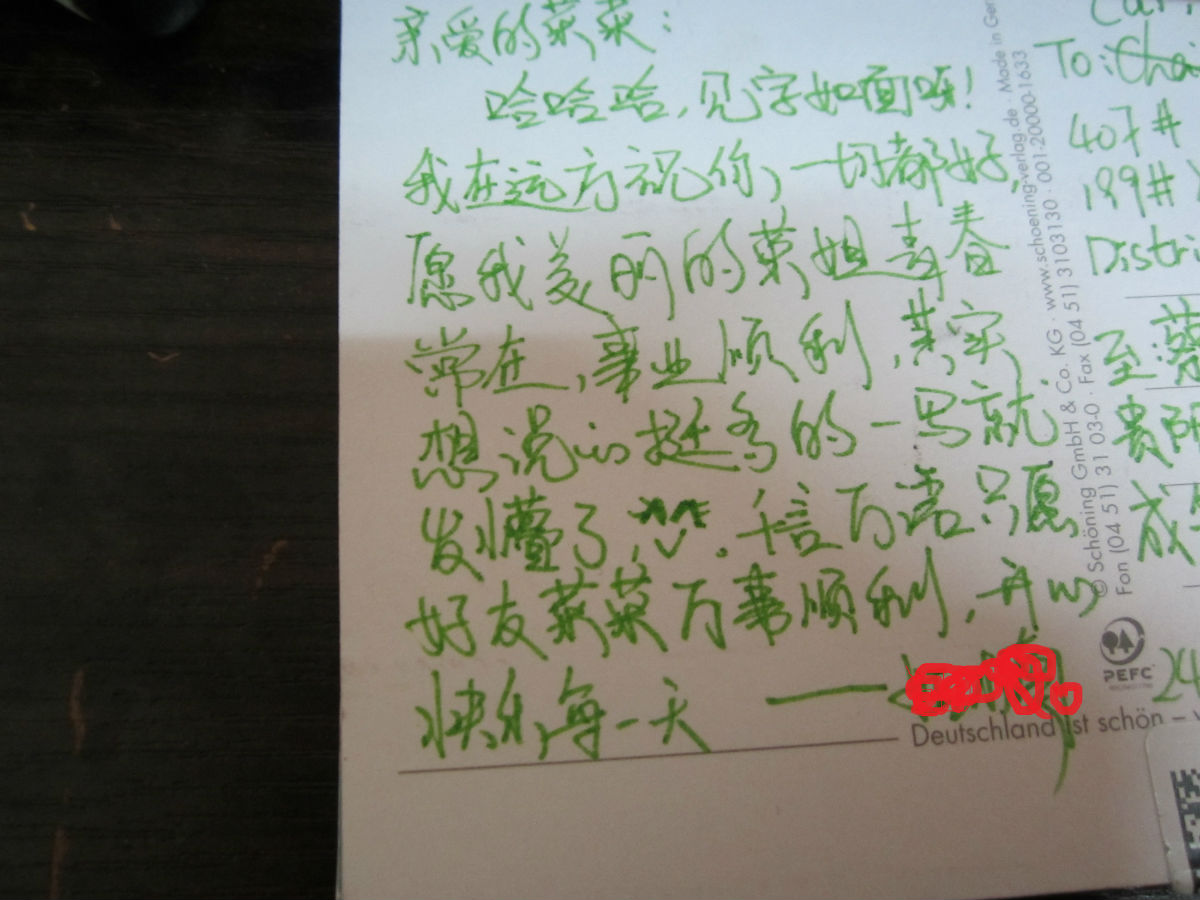 亲爱的菜菜：
哈哈哈，见字如面呀！
我在远方祝你，一切都好，
愿我美丽的菜姐青春
常在，事业顺利，其实
想说的挺多的一写就
发懵了，. 千言万语只愿
好友菜菜万事顺利，开心
快乐每一天 ——
© Schöning GmbH & Co. KG · www.schoening-verlag.de · Made in Ger
Fon (04 51) 31 03-0 · Fax (04 51) 3103130 · 001-20000-1633
PEFC
Deutschland ist schön –
To:
407#
199#
Distri
至:菜
贵阳
成
24